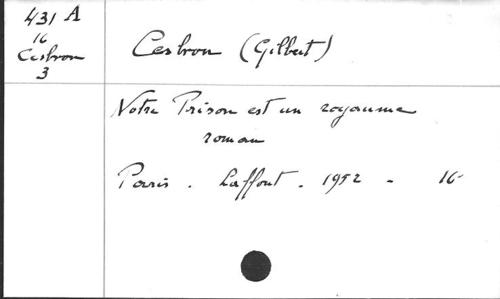 431 A
16
Cesbron
3
Cesbron (Gilbert)
Notre Prison est un royaume
roman
Paris. Laffont. 1952 - 16